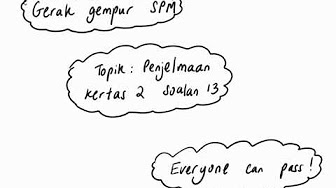 Gerak gempur SPM
Topik : Penjelmaan
kertas 2 soalan 13
Everyone can pass!